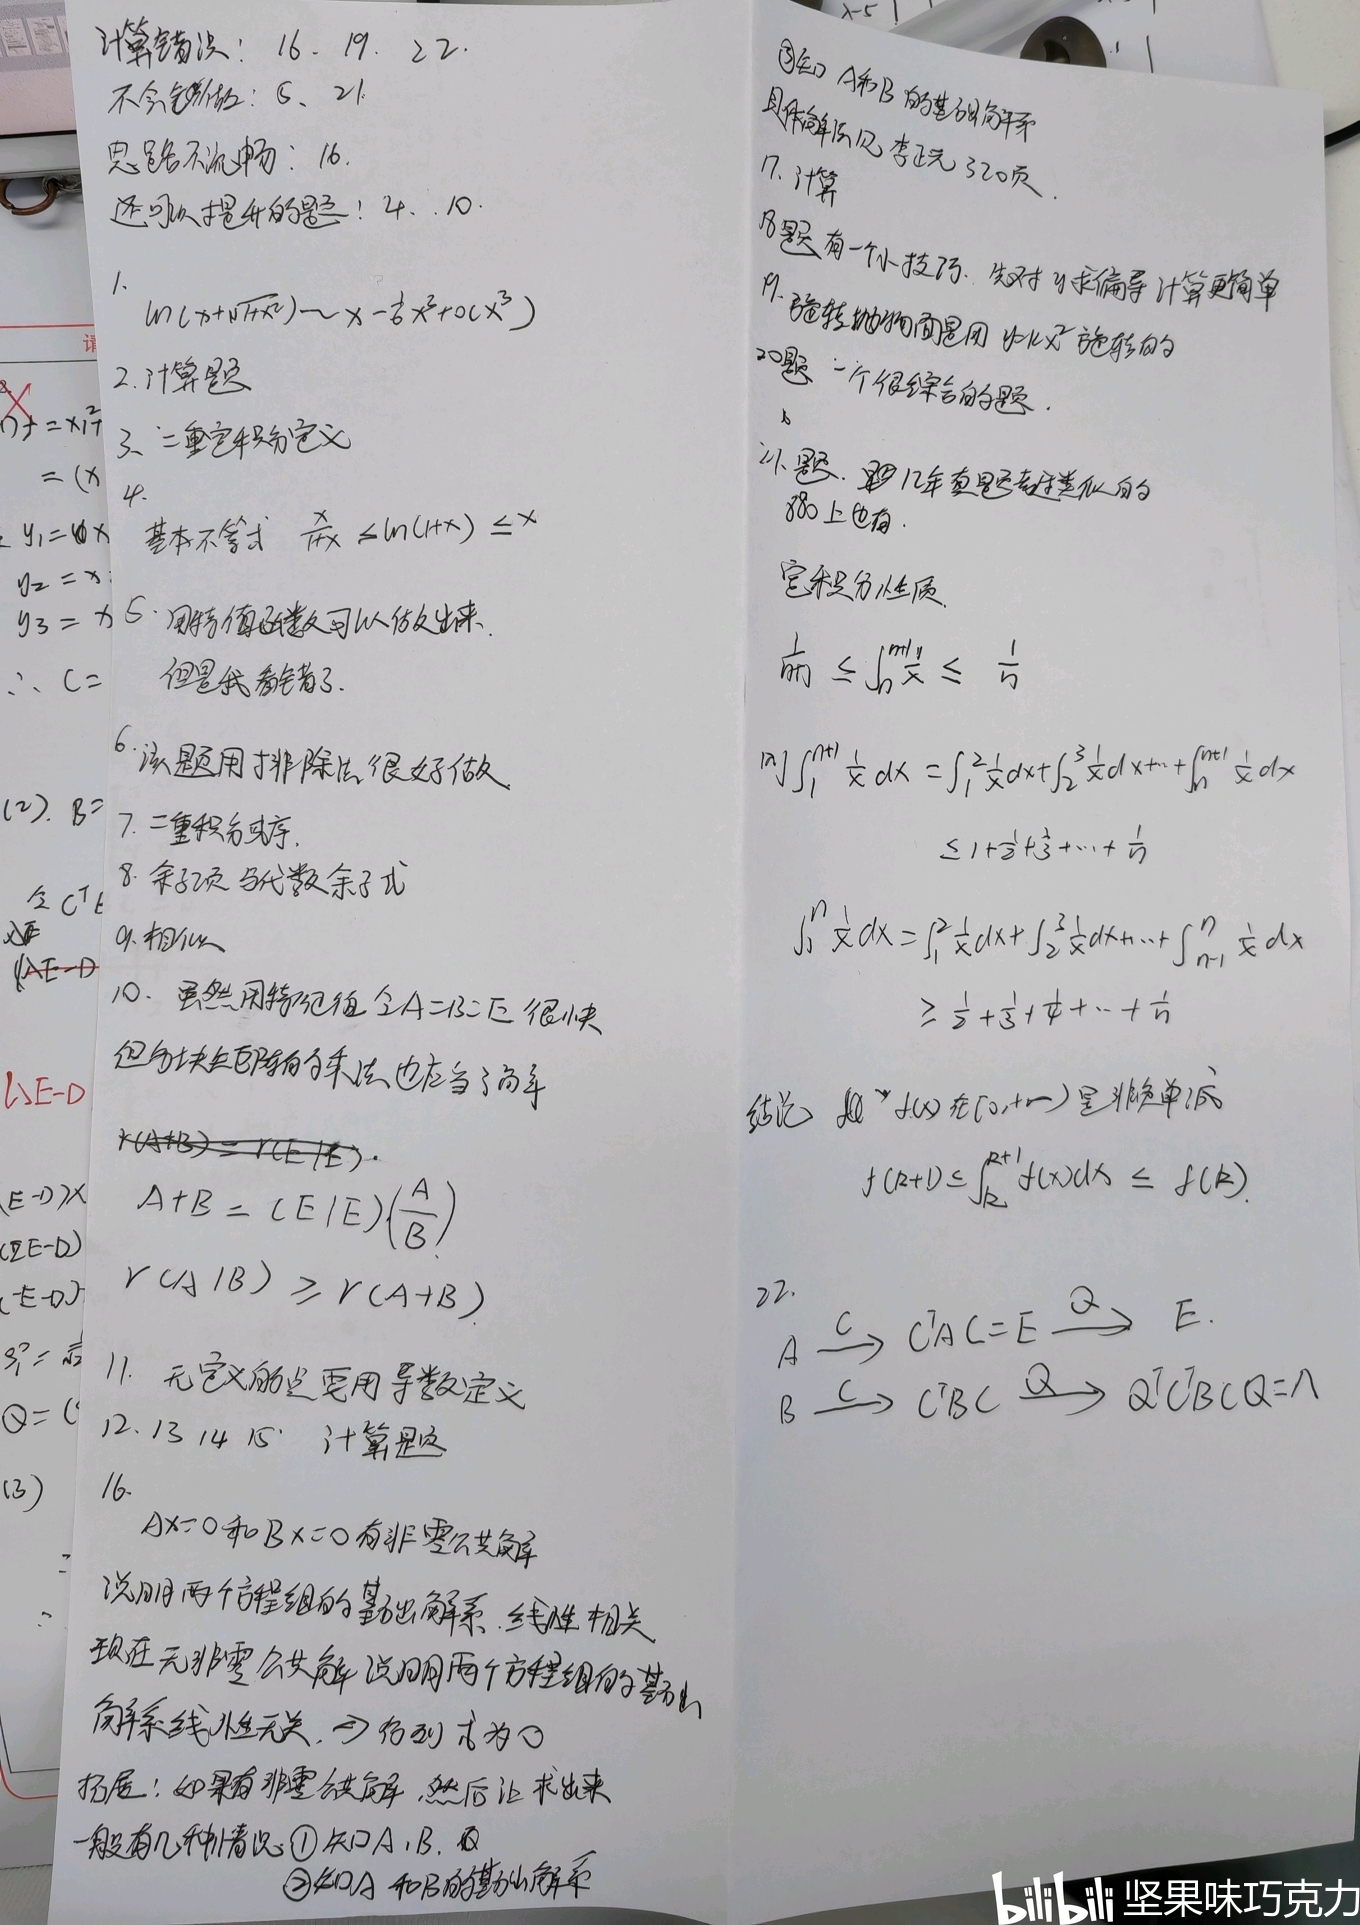 计算错误: 16、19、22.
不会错做: 5、21.
思路不流畅: 16.
还可以提升的题: 4、10.
1.
ln(x+√1+x²)~x-1/6x³+o(x³)
2.计算题
3、二重定积分定义
4.
基本不等式 x/1+x ≤ln(1+x)≤x
5.用特值函数可以做出来.
但是我看错了.
6.该题用排除法很好做
7.二重积分换序.
8.余子项与代数余子式
9.相似
10.虽然用特征值令A=B=E很快
但分块矩阵的乘法也应当了解
r(A+B)=r(E|E).
A+B=(E|E)(A/B)
r(A|B)≥r(A+B)
11.无定义的点要用导数定义
12.13 14 15.计算题
16.
Ax=0和Bx=0有非零公共解
说明两个方程组的基础解系.线性相关
现在无非零公共解说明两个方程组的基础
解系线性无关.⇒行列式为0
拓展:如果有非零公共解,然后让求出来
一般有几种情况①知A,B.
②知A和B的基础解系
③知A和B的基础解系
具体解法见李正元320页.
17.计算
18题有一个小技巧.先对y求偏导计算更简单
19.旋转抛物面是用y=kx²旋转的
20题 一个很综合的题.
21.题. 12年真题有过类似的
880上也有.
定积分性质.
1/n+1 ≤∫n n+1 1/x ≤ 1/n
则∫1 n+1 1/x dx=∫1 2 1/x dx+∫2 3 1/x dx+…+∫n n+1 1/x dx
≤1+1/2+1/3+…+1/n
∫1 n 1/x dx=∫1 2 1/x dx+∫2 3 1/x dx+…+∫n-1 n 1/x dx
≥1/2+1/3+1/4+…+1/n
结论 f(x)在[0,+∞)是非负单减
f(k+1)≤∫k k+1 f(x)dx≤f(k).
22.
A C→ CᵀAC=E Q→ E.
B C→ CᵀBC Q→ QᵀCᵀBCQ=Λ
x-5
= x₁²+
= (x
y₁=
y₂=x
y₃=x
∴ C=
(2). B=
令CᵀE
(λE-D
(λE-D
(E-D)x
(2E-D)
(-E-D)
Q=(
(3)
bilibili 坚果味巧克力